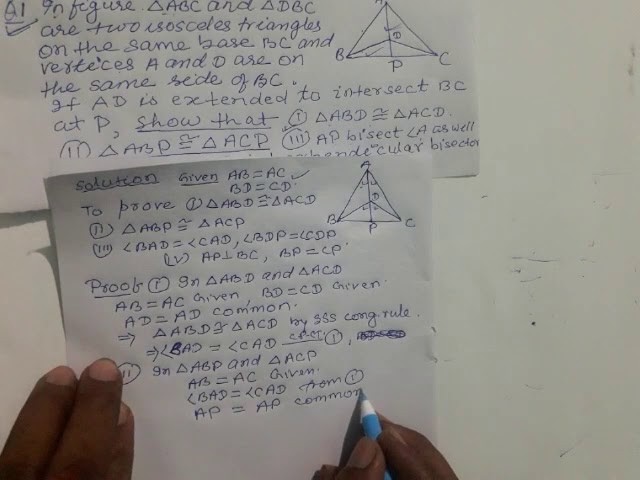 Q1 In figure. △ABC and △DBC
are two isosceles triangles
on the same base BC and
vertices A and D are on
the same side of BC.
If AD is extended to intersect BC
at P, show that (I) △ABD ≅ △ACD.
(II) △ABP ≅ △ACP (III) AP bisect ∠A as well
perpendicular bisector
A
D
B
P
C
Solution Given AB = AC
BD = CD.
To prove (I) △ABD ≅ △ACD
(II) △ABP ≅ △ACP
(III) ∠BAD = ∠CAD, ∠BDP = ∠CDP
(IV) AP ⊥ BC, BP = CP.
A
D
B
P
C
Proof (I) In △ABD and △ACD
AB = AC Given, BD = CD Given.
AD = AD common.
⇒ △ABD ≅ △ACD by SSS cong. rule.
⇒ ∠BAD = ∠CAD C.P.C.T. (I),
(II) In △ABP and △ACP
AB = AC Given.
∠BAD = ∠CAD from (I)
AP = AP common